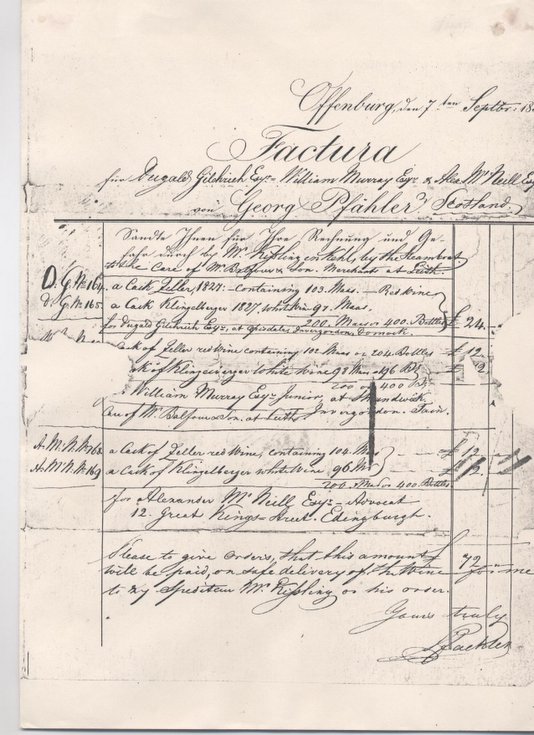 Offenburg, den 7ten Septbr. 18
Factura
für Dugald Gilchrist Esqr. William Murray Esqr. & Alex. McNeill Esq
von Georg Pfähler, Scotland.
Sandte Ihnen für Ihre Rechnung und Ge-
fahr durch by Mr. Kißling in Kehl, by the Steamboat
to the Care of Mr. Balfour & Son. Merchant at Leith
D. G. No. 164. a Cask Zeller, 1827 – containing 103. Maas. – Red wine
D. G. No. 165. a Cask Klingelberger 1827, white wine 97. Maas.
200. Maas or 400. Bottles £ 24.
for Dugald Gilchrist Esqr. at Invergordon. Dornoch
Cask of Zeller red wine containing 102 Maas or 204. Bottles £ 12
of Klingelberger White wine 98 Maas 196 Bt. £ 12
200 or 400 Bt.
William Murray Esqr. Junior, at
Care of Mr. Balfour & Son. at Leith Invergordon. Tain.
A. M. N. No. 168 a Cask of Zeller red wine, containing 104. Maas £ 12
A. M. N. No. 169 a Cask of Klingelberger white wine 96. Ms. £ 12.
200. Maas or 400. Bottles
for Alexander McNeill Esqr. – Advocat
12. Great Kings Street. Edingburgh.
Please to give orders, that this amount £ 72
will be paid, on safe delivery of the Wine for me
to my Spediteur Mr. Kißling or his order.
Yours truly
Pfaehler